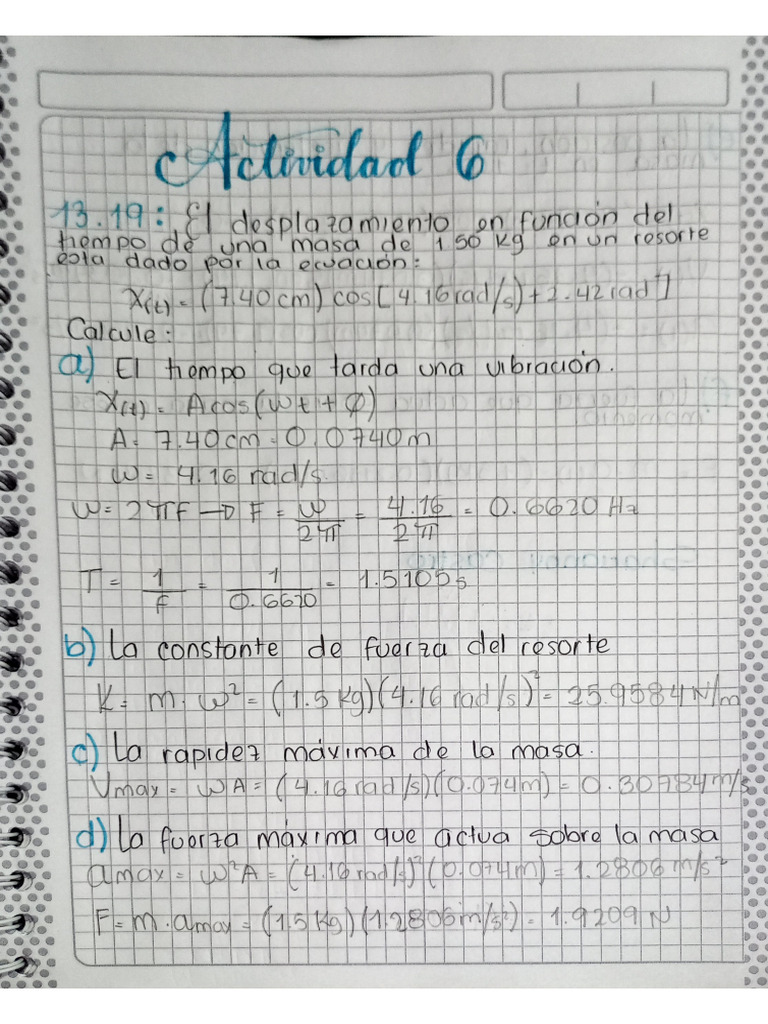 Actividad 6
13.19: El desplazamiento en función del
tiempo de una masa de 1 50 kg en un resorte
esta dado por la ecuación:
X(t) = (7.40 cm) cos [4.16 rad/s) + 2.42 rad]
Calcule:
a) El tiempo que tarda una vibración.
X(t) = A cos (wt + Ø)
A = 7.40 cm = 0.0740 m
W = 4.16 rad/s
W = 2πF → F = W/2π = 4.16/2π = 0.6620 Hz
T = 1/F = 1/0.6620 = 1.5105 s
b) La constante de fuerza del resorte
K = m · w² = (1.5 kg)(4.16 rad/s)² = 25.9584 N/m
c) La rapidez máxima de la masa.
Vmax = WA = (4.16 rad/s)(0.074m) = 0.30784 m/s
d) La fuerza máxima que actua sobre la masa
amax = w²A = (4.16 rad/s)²(0.074m) = 1.2806 m/s²
F = m · amax = (1.5 kg)(1.2806 m/s²) = 1.9209 N